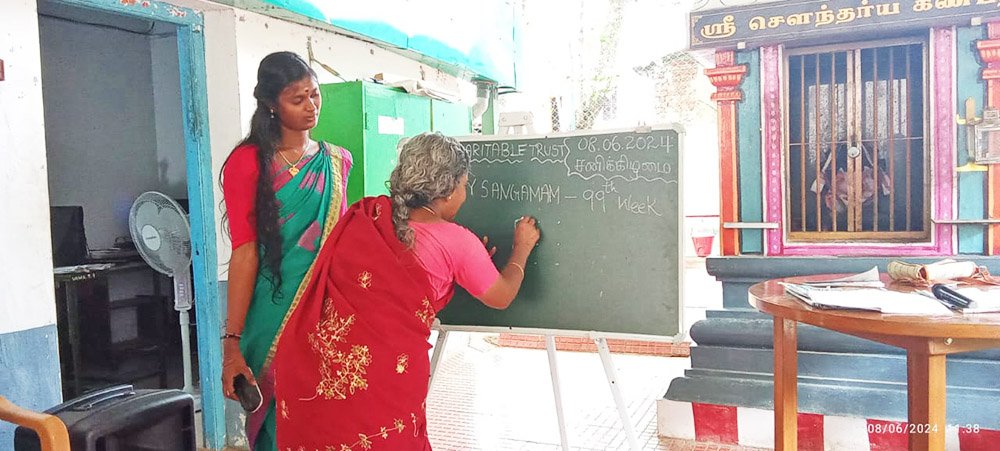 ஸ்ரீ சௌந்தர்ய
ARITABLE TRUST
08.06.2024
சனிக்கிழமை
Y SANGAMAM - 99th Week
08/06/2024 11:38